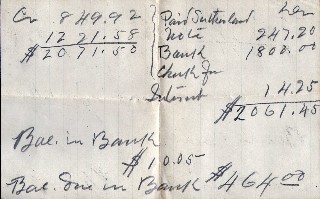 Cr 849.92
1221.58
$2071.50
Dr
Paid Sutherland
Note 247.20
Bank 1800.00
Check for
Interest 14.25
$2061.45
Bal. in Bank
$10.05
Bal. due in Bank $464.00